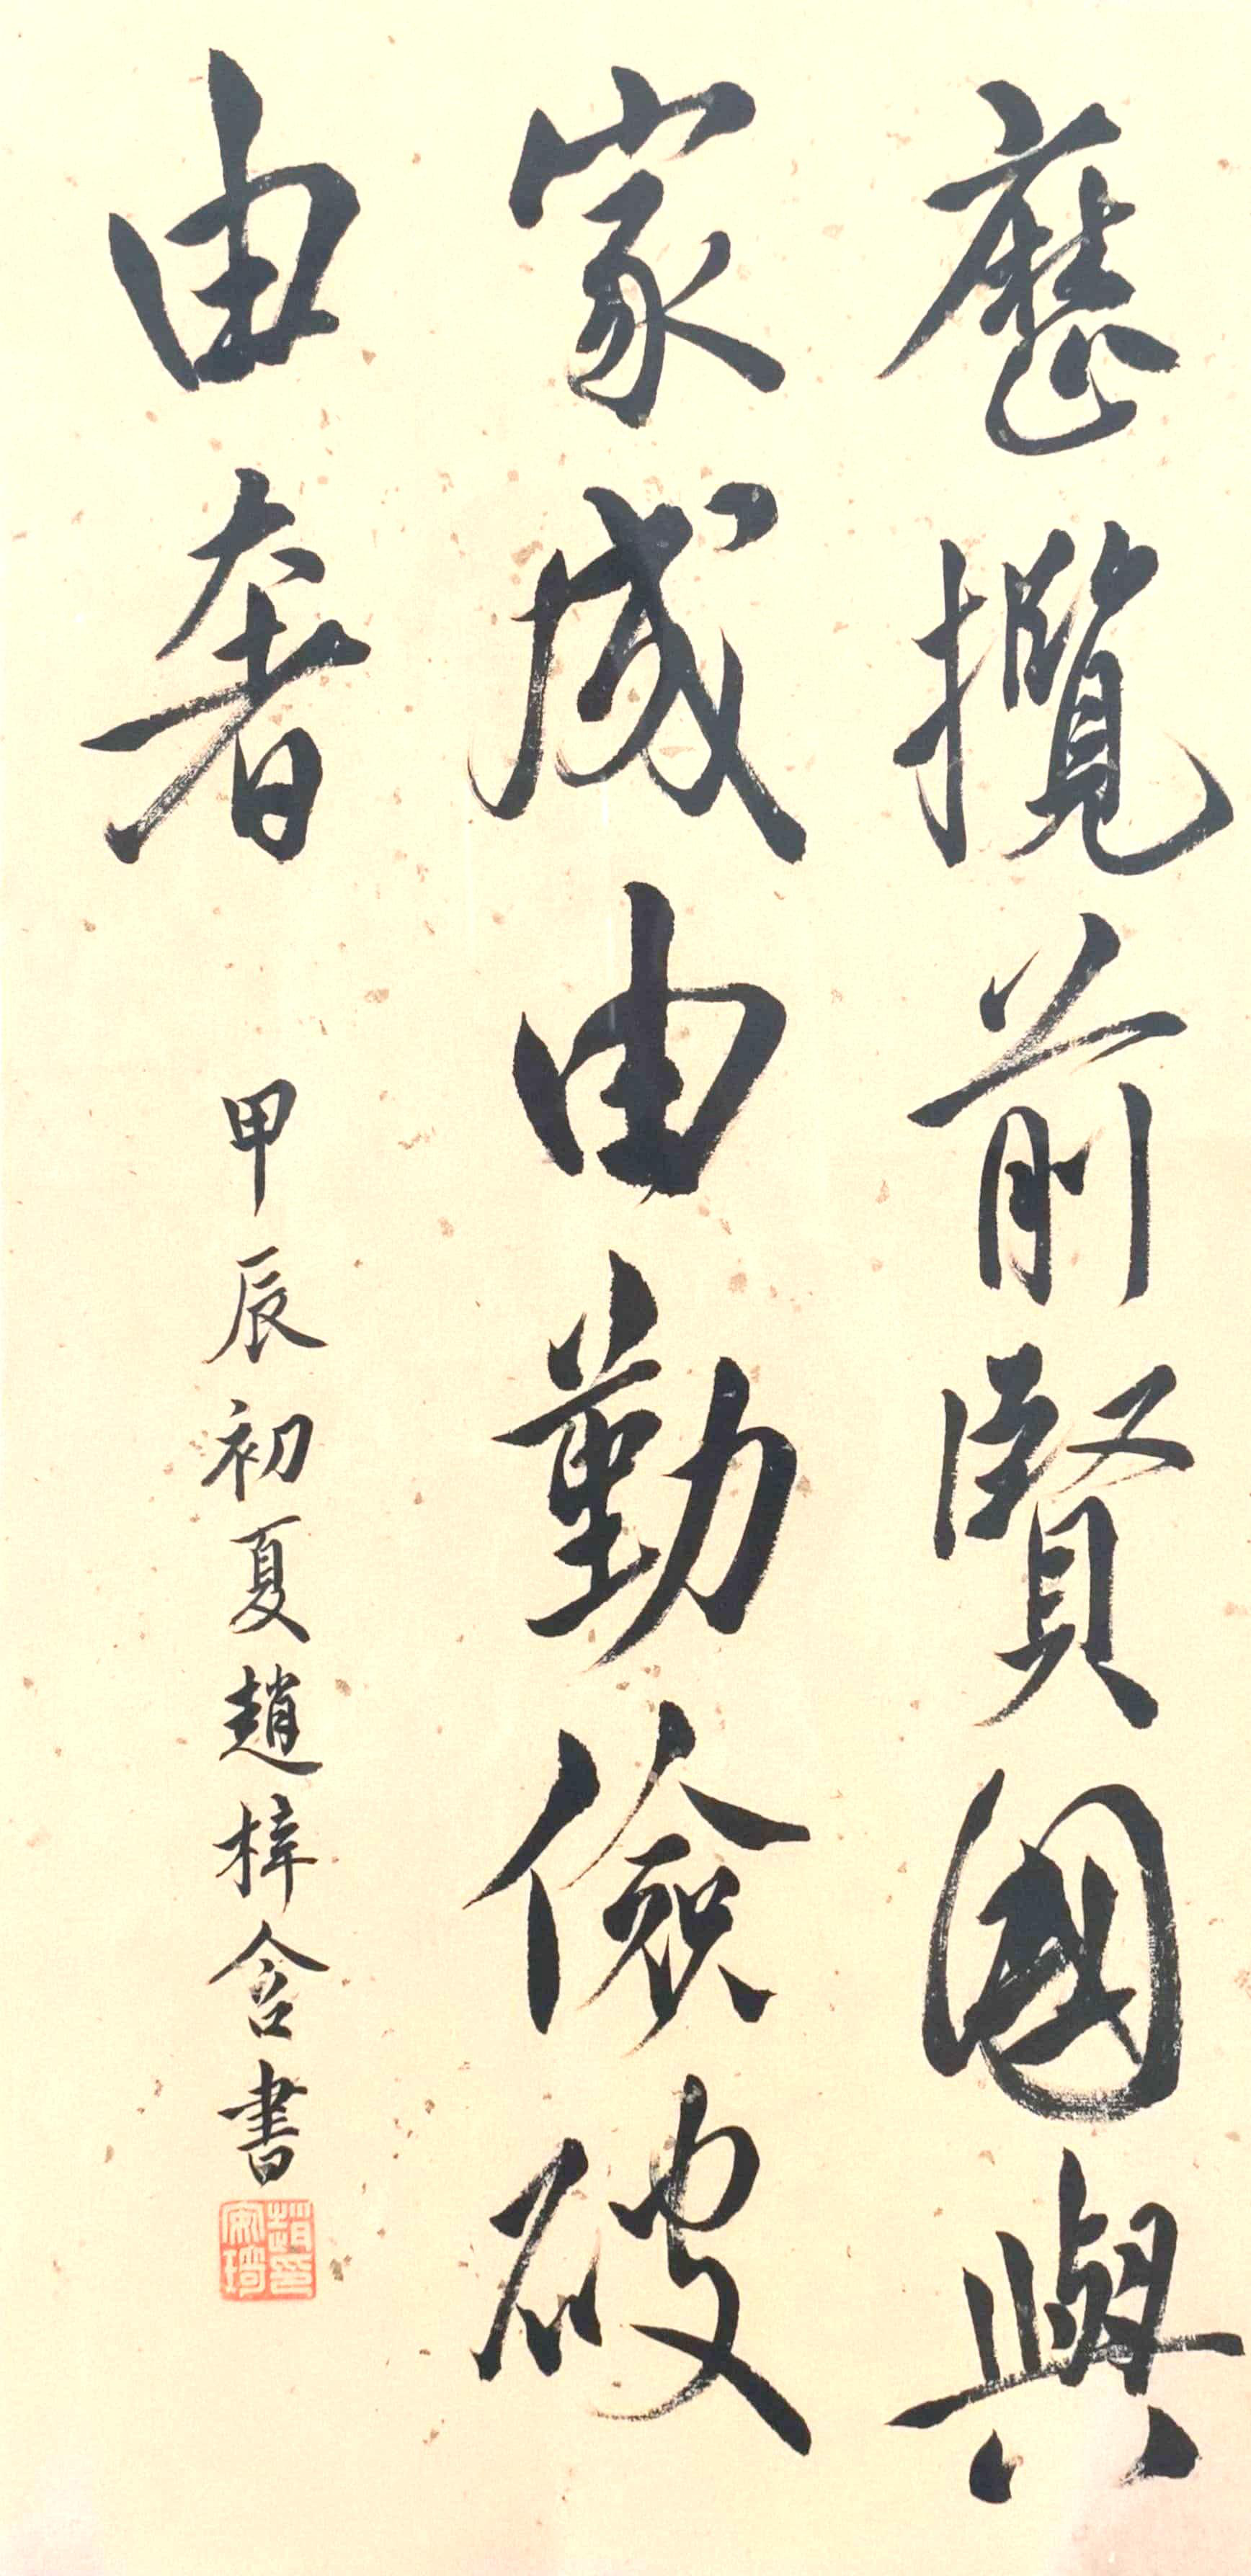 歷攬前賢國與
家成由勤儉破
由奢
甲辰初夏趙梓含書